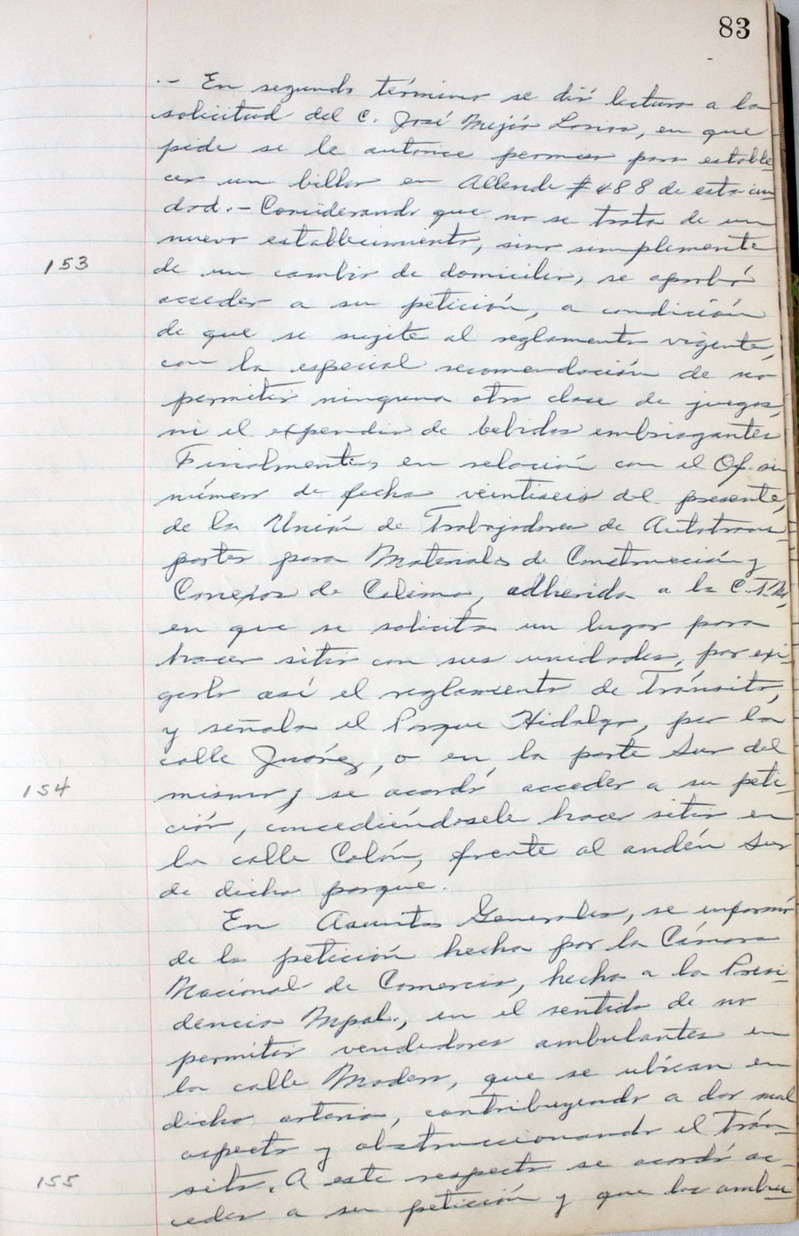 83
.- En segundo término se dió lectura a la
solicitud del C. José Mejía, en que
pide se le autorice permiso para estable-
cer un billar en Allende #488 de esta ciu
dad.- Considerando que no se trata de un
nuevo establecimiento, sino simplemente
153 de un cambio de domicilio, se aprobó
acceder a su petición, a condición
de que se sujete al reglamento vigente,
con la especial recomendación de no
permitir ninguna otra clase de juegos,
ni el expendio de bebidas embriagantes
Finalmente, en relación con el Of. sin
número de fecha veintiseis del presente,
de la Unión de Trabajadores de Autotrans-
portes para Materiales de Construcción y
Conexos de Colima, adherida a la C.T.M.,
en que se solicita un lugar para
hacer sitio con sus unidades, por exi-
girlo así el reglamento de Tránsito,
y señala el Parque Hidalgo, por la
calle Juárez, o en la parte Sur del
154 mismo; se acordó acceder a su peti-
ción, concediéndosele hacer sitio en
la calle Colón, frente al andén Sur
de dicho parque.
En Asuntos Generales, se informó
de la petición hecha por la Cámara
Nacional de Comercio, hecha a la Presi-
dencia Mpal., en el sentido de no
permitir vendedores ambulantes en
la calle Madero, que se ubican en
dicha arteria, contribuyendo a dar mal
aspecto y obstruccionando el trán-
155 sito. A este respecto se acordó ac-
ceder a su petición y que los ambu